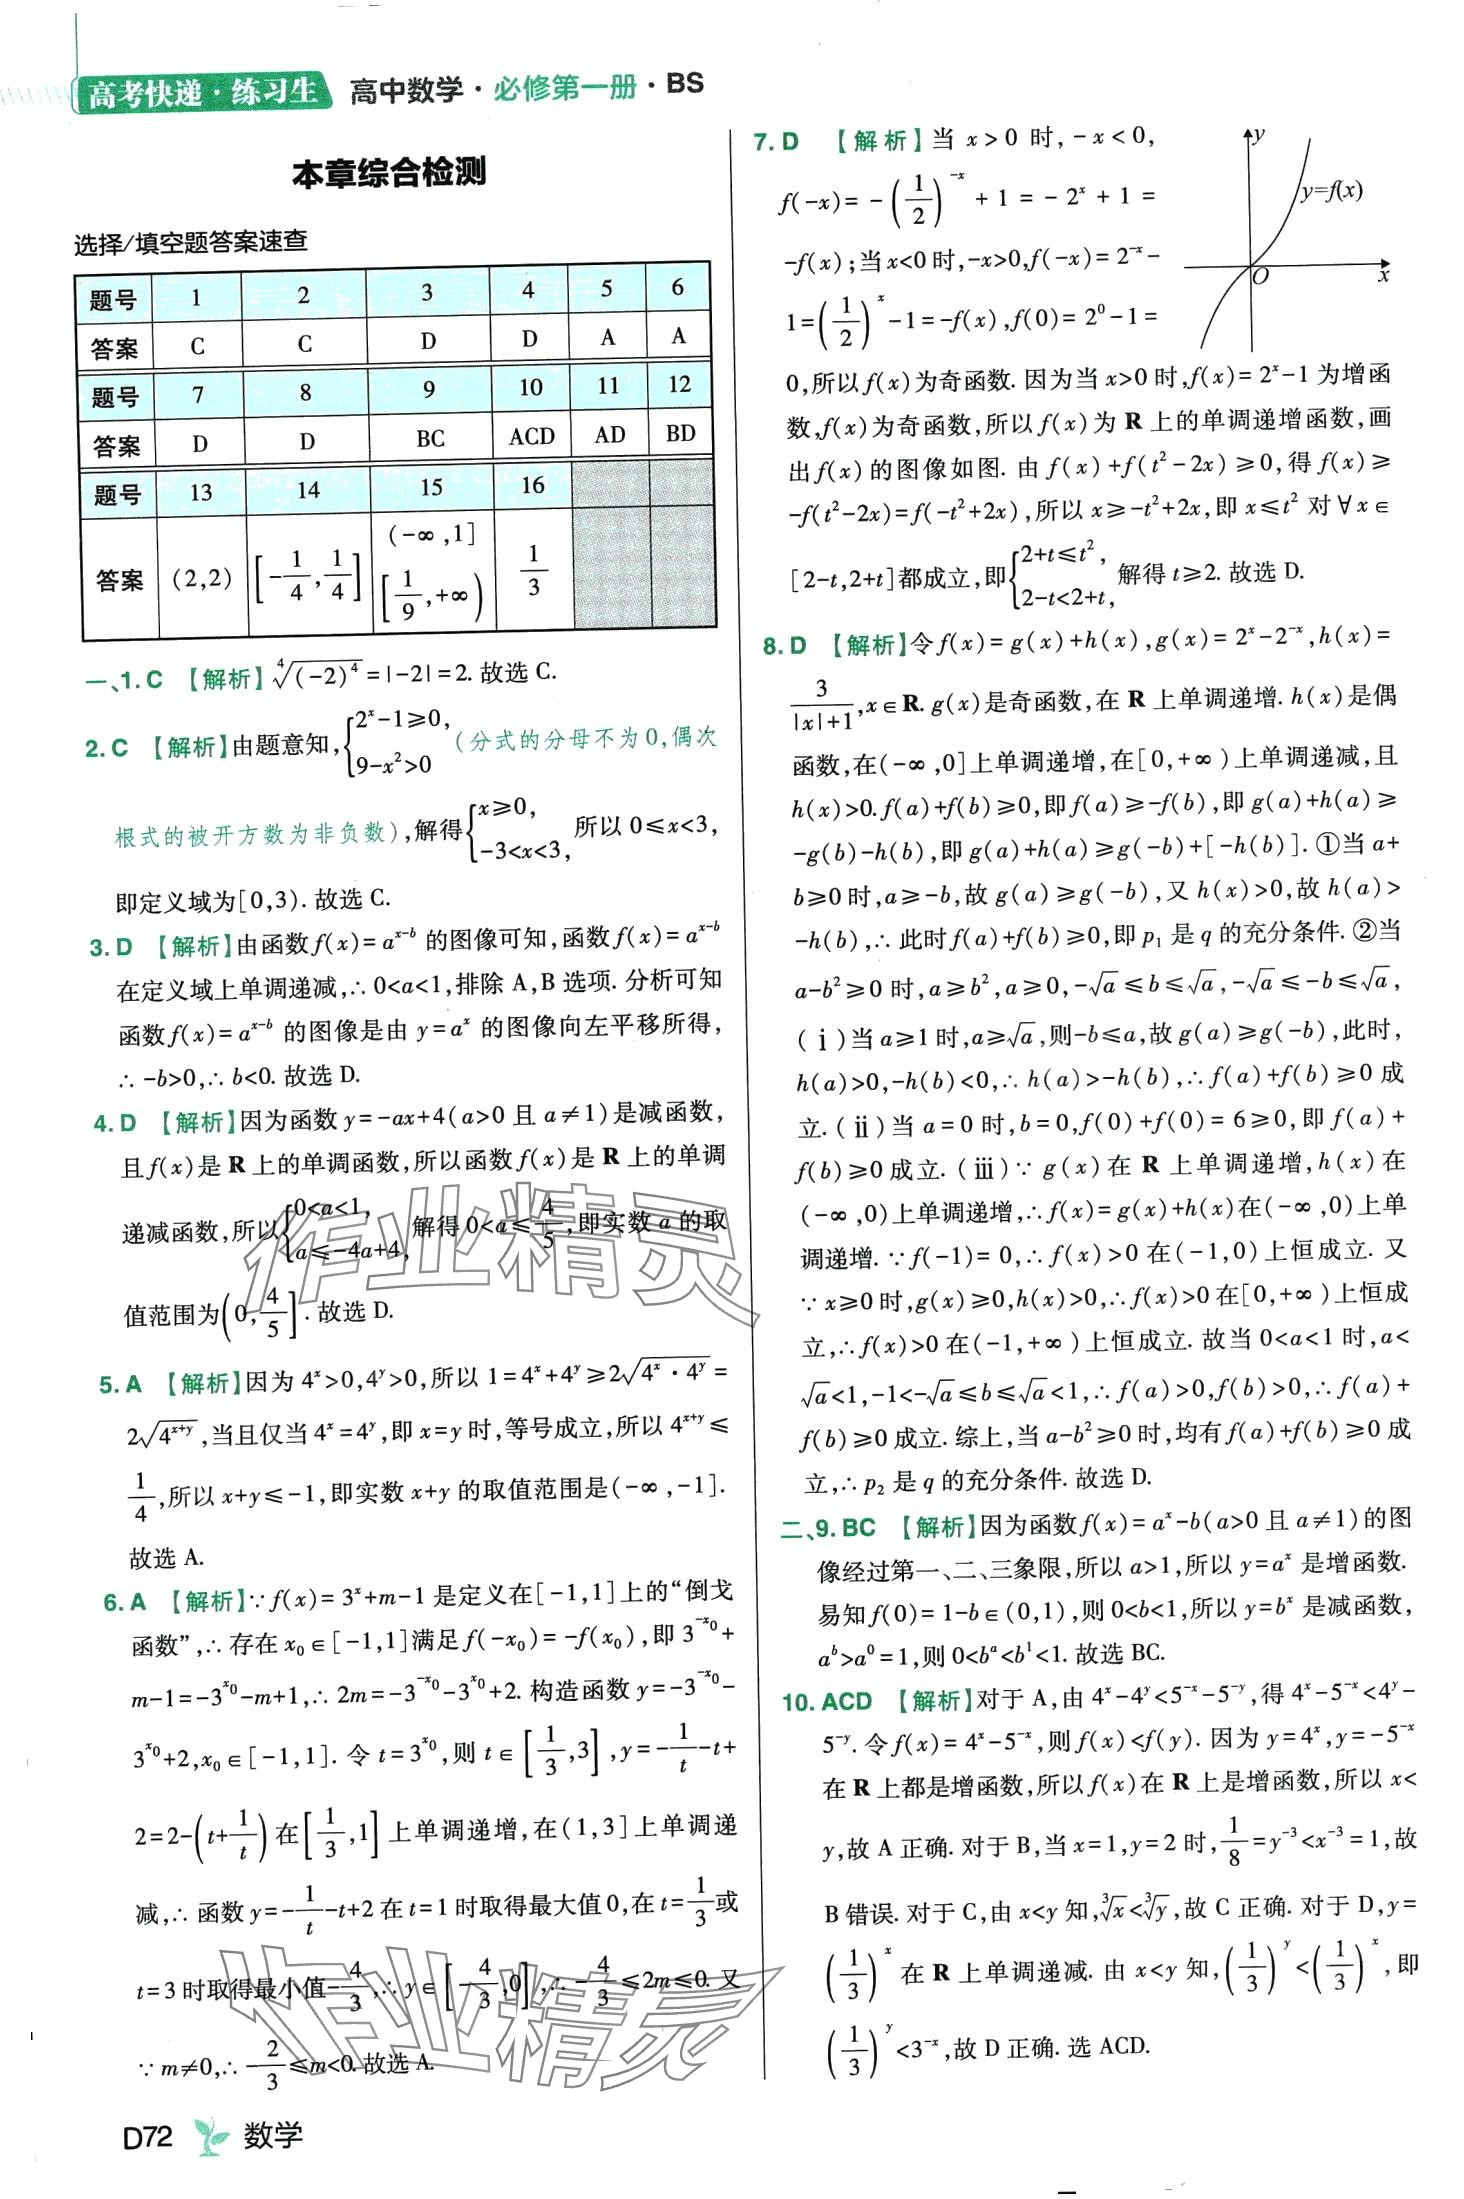 高考快递·练习生 高中数学·必修第一册·BS
本章综合检测
选择/填空题答案速查
题号 1 2 3 4 5 6
答案 C C D D A A
题号 7 8 9 10 11 12
答案 D D BC ACD AD BD
题号 13 14 15 16
答案 (2,2) [-1/4,1/4] (-∞,1] [1/9,+∞) 1/3
一、1. C 【解析】∜(-2)⁴=|-2|=2. 故选 C.
2. C 【解析】由题意知,{2^x-1≥0, 9-x²>0 (分式的分母不为0,偶次
根式的被开方数为非负数),解得{x≥0, -3<x<3, 所以 0≤x<3,
即定义域为[0,3). 故选 C.
3. D 【解析】由函数 f(x)=a^(x-b) 的图像可知,函数 f(x)=a^(x-b)
在定义域上单调递减,∴0<a<1,排除 A,B 选项. 分析可知
函数 f(x)=a^(x-b) 的图像是由 y=a^x 的图像向左平移所得,
∴-b>0,∴b<0. 故选 D.
4. D 【解析】因为函数 y=-ax+4(a>0 且 a≠1)是减函数,
且 f(x)是 R 上的单调函数,所以函数 f(x)是 R 上的单调
递减函数,所以{0<a<1, a≤-4a+4, 解得 0<a≤4/5,即实数 a 的取
值范围为(0,4/5]. 故选 D.
5. A 【解析】因为 4^x>0,4^y>0,所以 1=4^x+4^y≥2√(4^x·4^y)=
2√(4^(x+y)),当且仅当 4^x=4^y,即 x=y 时,等号成立,所以 4^(x+y)≤
1/4,所以 x+y≤-1,即实数 x+y 的取值范围是(-∞,-1].
故选 A.
6. A 【解析】∵f(x)=3^x+m-1 是定义在[-1,1]上的“倒戈
函数”,∴存在 x₀∈[-1,1]满足 f(-x₀)=-f(x₀),即 3^(-x₀)+
m-1=-3^(x₀)-m+1,∴2m=-3^(-x₀)-3^(x₀)+2. 构造函数 y=-3^(-x₀)-
3^(x₀)+2,x₀∈[-1,1]. 令 t=3^(x₀),则 t∈[1/3,3],y=-1/t-t+
2=2-(t+1/t)在[1/3,1]上单调递增,在(1,3]上单调递
减,∴函数 y=-1/t-t+2 在 t=1 时取得最大值 0,在 t=1/3 或
t=3 时取得最小值-4/3,∴y∈[-4/3,0],∴-4/3≤2m≤0. 又
∵m≠0,∴-2/3≤m<0. 故选 A.
D72 数学
7. D 【解析】当 x>0 时,-x<0,
f(-x)=-(1/2)^(-x)+1=-2^x+1=
-f(x);当 x<0 时,-x>0,f(-x)=2^(-x)-
1=(1/2)^x-1=-f(x),f(0)=2⁰-1=
y
y=f(x)
O
x
0,所以 f(x)为奇函数. 因为当 x>0 时,f(x)=2^x-1 为增函
数,f(x)为奇函数,所以 f(x)为 R 上的单调递增函数,画
出 f(x)的图像如图. 由 f(x)+f(t²-2x)≥0,得 f(x)≥
-f(t²-2x)=f(-t²+2x),所以 x≥-t²+2x,即 x≤t² 对∀x∈
[2-t,2+t]都成立,即{2+t≤t², 2-t<2+t, 解得 t≥2. 故选 D.
8. D 【解析】令 f(x)=g(x)+h(x),g(x)=2^x-2^(-x),h(x)=
3/(|x|+1),x∈R. g(x)是奇函数,在 R 上单调递增. h(x)是偶
函数,在(-∞,0]上单调递增,在[0,+∞)上单调递减,且
h(x)>0. f(a)+f(b)≥0,即 f(a)≥-f(b),即 g(a)+h(a)≥
-g(b)-h(b),即 g(a)+h(a)≥g(-b)+[-h(b)]. ①当 a+
b≥0 时,a≥-b,故 g(a)≥g(-b),又 h(x)>0,故 h(a)>
-h(b),∴此时 f(a)+f(b)≥0,即 p₁ 是 q 的充分条件. ②当
a-b²≥0 时,a≥b²,a≥0,-√a≤b≤√a,-√a≤-b≤√a,
(ⅰ)当 a≥1 时,a≥√a,则-b≤a,故 g(a)≥g(-b),此时,
h(a)>0,-h(b)<0,∴h(a)>-h(b),∴f(a)+f(b)≥0 成
立. (ⅱ)当 a=0 时,b=0,f(0)+f(0)=6≥0,即 f(a)+
f(b)≥0 成立. (ⅲ)∵g(x)在 R 上单调递增,h(x)在
(-∞,0)上单调递增,∴f(x)=g(x)+h(x)在(-∞,0)上单
调递增. ∵f(-1)=0,∴f(x)>0 在(-1,0)上恒成立. 又
∵x≥0 时,g(x)≥0,h(x)>0,∴f(x)>0 在[0,+∞)上恒成
立,∴f(x)>0 在(-1,+∞)上恒成立. 故当 0<a<1 时,a<
√a<1,-1<-√a≤b≤√a<1,∴f(a)>0,f(b)>0,∴f(a)+
f(b)≥0 成立. 综上,当 a-b²≥0 时,均有 f(a)+f(b)≥0 成
立,∴p₂ 是 q 的充分条件. 故选 D.
二、9. BC 【解析】因为函数 f(x)=a^x-b(a>0 且 a≠1)的图
像经过第一、二、三象限,所以 a>1,所以 y=a^x 是增函数.
易知 f(0)=1-b∈(0,1),则 0<b<1,所以 y=b^x 是减函数,
a^b>a⁰=1,则 0<b^a<b¹<1. 故选 BC.
10. ACD 【解析】对于 A,由 4^x-4^y<5^(-x)-5^(-y),得 4^x-5^(-x)<4^y-
5^(-y). 令 f(x)=4^x-5^(-x),则 f(x)<f(y). 因为 y=4^x,y=-5^(-x)
在 R 上都是增函数,所以 f(x)在 R 上是增函数,所以 x<
y,故 A 正确. 对于 B,当 x=1,y=2 时,1/8=y^(-3)<x^(-3)=1,故
B 错误. 对于 C,由 x<y 知,∛x<∛y,故 C 正确. 对于 D,y=
(1/3)^x 在 R 上单调递减. 由 x<y 知,(1/3)^y<(1/3)^x,即
(1/3)^y<3^(-x),故 D 正确. 选 ACD.
作业精灵
作业精灵